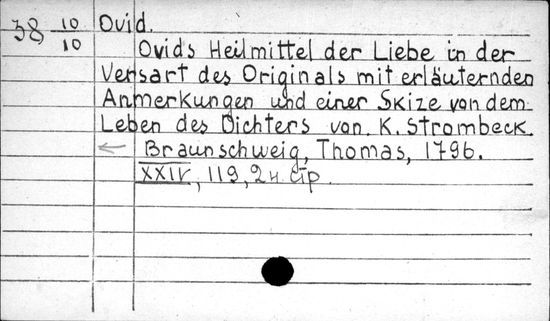 38 10/10 Ovid.
Ovids Heilmittel der Liebe in der
Versart des Originals mit erläuternden
Anmerkungen und einer Skize von dem
Leben des Dichters von K. Strombeck.
Braunschweig, Thomas, 1796.
XXIV, 119, 2 н. стр.